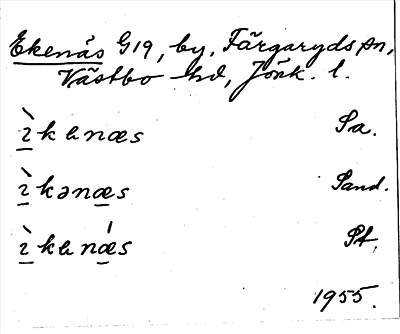 Ekenäs G19, by, Färgaryds sn,
Västbo hd, Jönk. l.
ìkenæs Sa.
ìkənæs Sand.
ìkenǽs St.
1955.